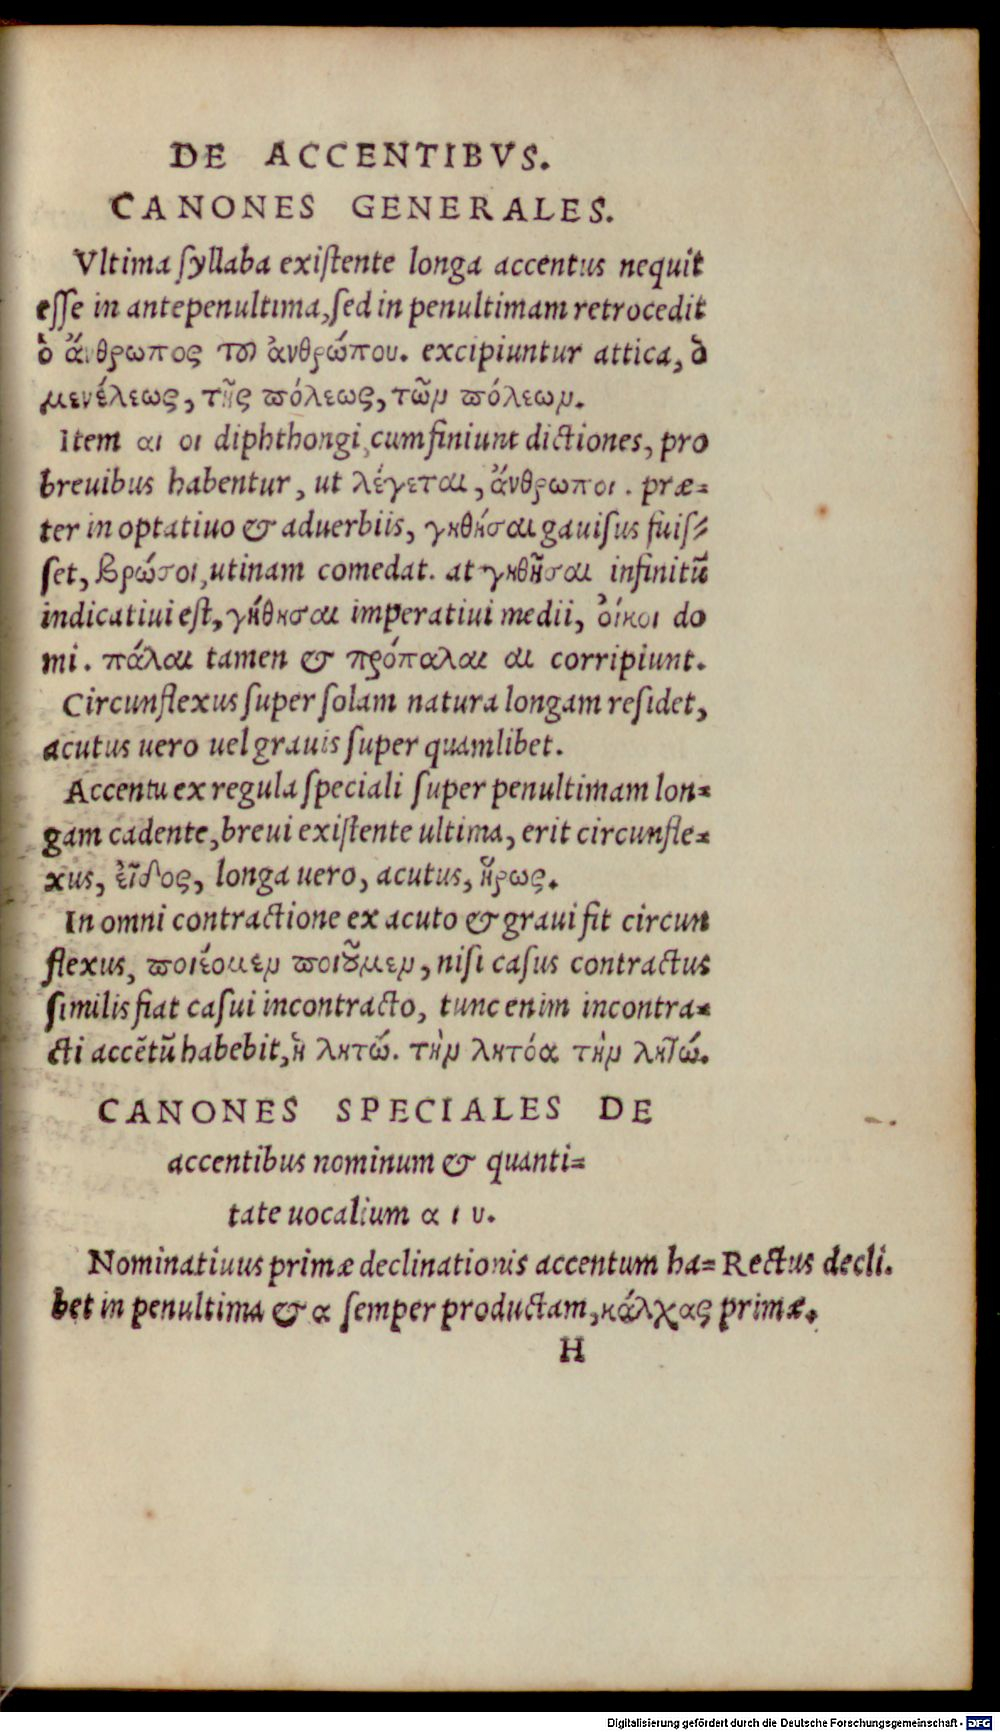 DE ACCENTIBVS.
CANONES GENERALES.
Vltima ſyllaba exiſtente longa accentus nequit
eſſe in antepenultima, ſed in penultimam retrocedit
ὁ ἄνθρωπος τοῦ ἀνθρώπου. excipiuntur attica, ὁ
μενέλεως, τῆς πόλεως, τῶν πόλεων.
Item αι οι diphthongi, cum finiunt dictiones, pro
breuibus habentur, ut λέγεται, ἄνθρωποι. præ=
ter in optatiuo & aduerbiis, γηθήσαι gauiſus fuiſ=
ſet, βρώσοι, utinam comedat. at γηθῆσαι infinitū
indicatiui eſt, γήθησαι imperatiui medii, οἴκοι do
mi. πάλαι tamen & πρόπαλαι αι corripiunt.
Circunflexus ſuper ſolam natura longam reſidet,
acutus uero uel grauis ſuper quamlibet.
Accentu ex regula ſpeciali ſuper penultimam lon=
gam cadente, breui exiſtente ultima, erit circunfle=
xus, εἶδος, longa uero, acutus, ἥρως.
In omni contractione ex acuto & graui fit circun
flexus, ποιέομεν ποιοῦμεν, niſi caſus contractus
ſimilis fiat caſui incontracto, tunc enim incontra=
cti accētū habebit, ἡ λητώ. τὴν λητόα τὴν λητώ.
CANONES SPECIALES DE
accentibus nominum & quanti=
tate uocalium α ι υ.
Nominatiuus primæ declinationis accentum ha= Rectus decli.
bet in penultima & α ſemper productam, κάλχας primæ.
H
Digitalisierung gefördert durch die Deutsche Forschungsgemeinschaft - DFG